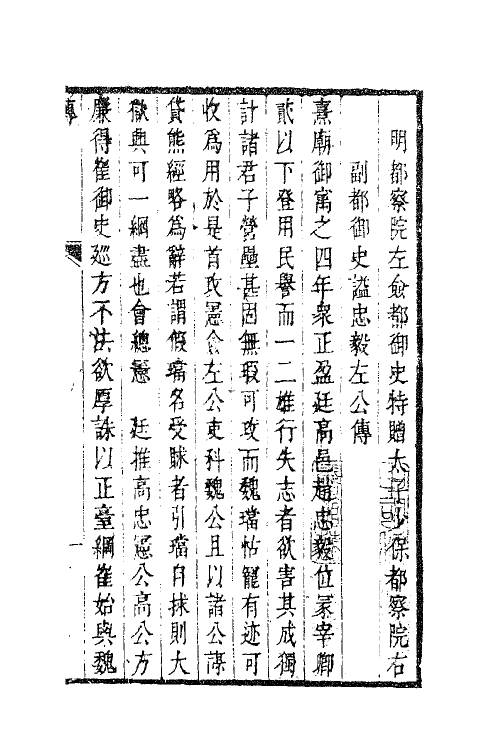 明都察院左僉都御史特贈太子少保都察院右
副都御史諡忠毅左公傳
熹廟御寓之四年衆正盈廷高邑趙忠毅位冢宰卿
貳以下登用民譽而一二雄行失志者欲害其成獨
計諸君子營壘甚固無瑕可攻而魏璫怙寵有迹可
收爲用於是首攻憲僉左公吏科魏公且以諸公薄
貸熊經略爲辭若謂假璫名受賕者引璫自抹則大
獄興可一綱盡也會總憲 廷推高忠憲公高公方
廉得崔御史廵方不法欲厚誅以正臺綱崔始與魏
傳
一